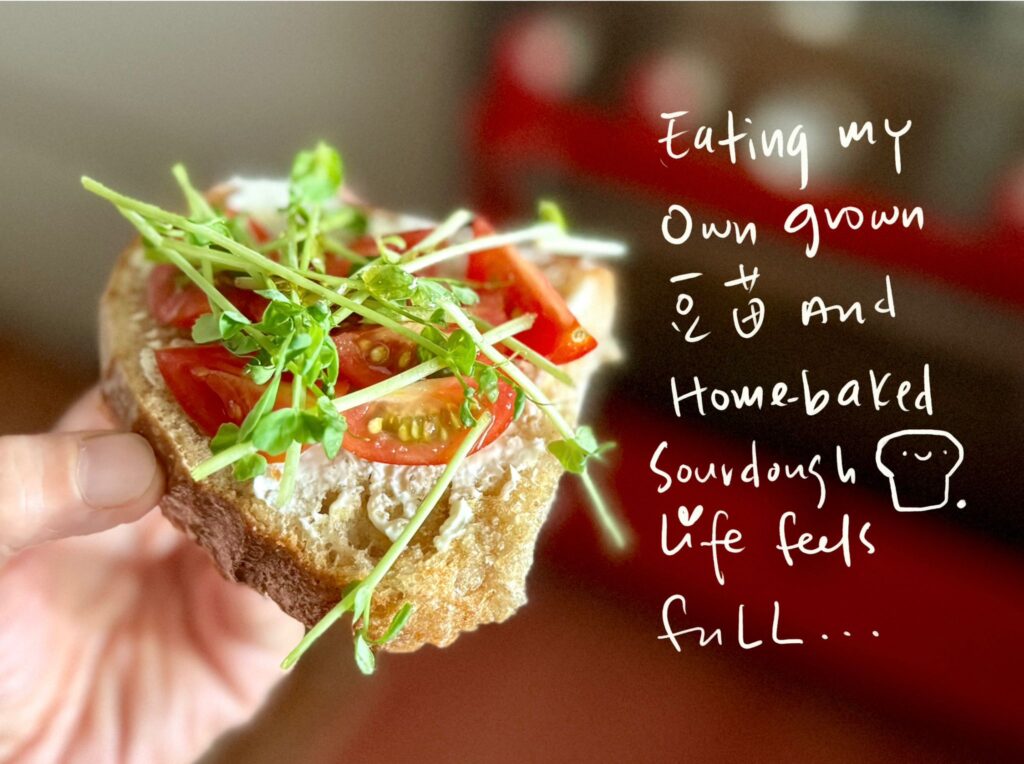 Eating my
Own grown
豆苗 And
Home-baked
Sourdough
Life feels
full...